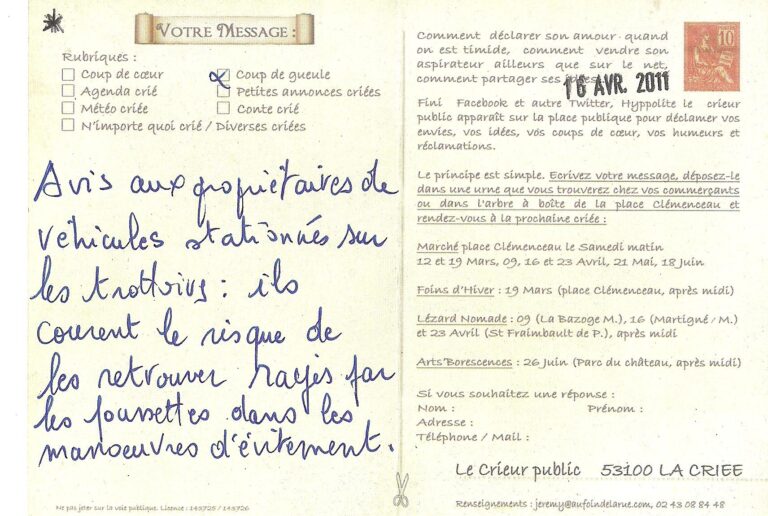 VOTRE MESSAGE :
Rubriques :
Coup de cœur
Coup de gueule
Agenda crié
Petites annonces criées
Météo criée
Conte crié
N'importe quoi crié / Diverses criées
Avis aux propriétaires de
véhicules stationnés sur
les trottoirs : ils
courent le risque de
les retrouver rayés par
les poussettes dans les
manoeuvres d'évitement.
Ne pas jeter sur la voie publique. Licence : 143725 / 143726
Comment déclarer son amour quand
on est timide, comment vendre son
aspirateur ailleurs que sur le net,
comment partager ses idées...
16 AVR. 2011
10
Fini Facebook et autre Twitter, Hyppolite le crieur
public apparaît sur la place publique pour déclamer vos
envies, vos idées, vos coups de cœur, vos humeurs et
réclamations.
Le principe est simple. Ecrivez votre message, déposez-le
dans une urne que vous trouverez chez vos commerçants
ou dans l'arbre à boîte de la place Clémenceau et
rendez-vous à la prochaine criée :
Marché place Clémenceau le Samedi matin
12 et 19 Mars, 09, 16 et 23 Avril, 21 Mai, 18 Juin
Foins d'Hiver : 19 Mars (place Clémenceau, après midi)
Lézard Nomade : 09 (La Bazoge M.), 16 (Martigné / M.)
et 23 Avril (St Fraimbault de P.), après midi
Arts'Borescences : 26 Juin (Parc du château, après midi)
Si vous souhaitez une réponse :
Nom : Prénom :
Adresse :
Téléphone / Mail :
Le Crieur public 53100 LA CRIEE
Renseignements : jeremy@aufoindelarue.com, 02 43 08 84 48